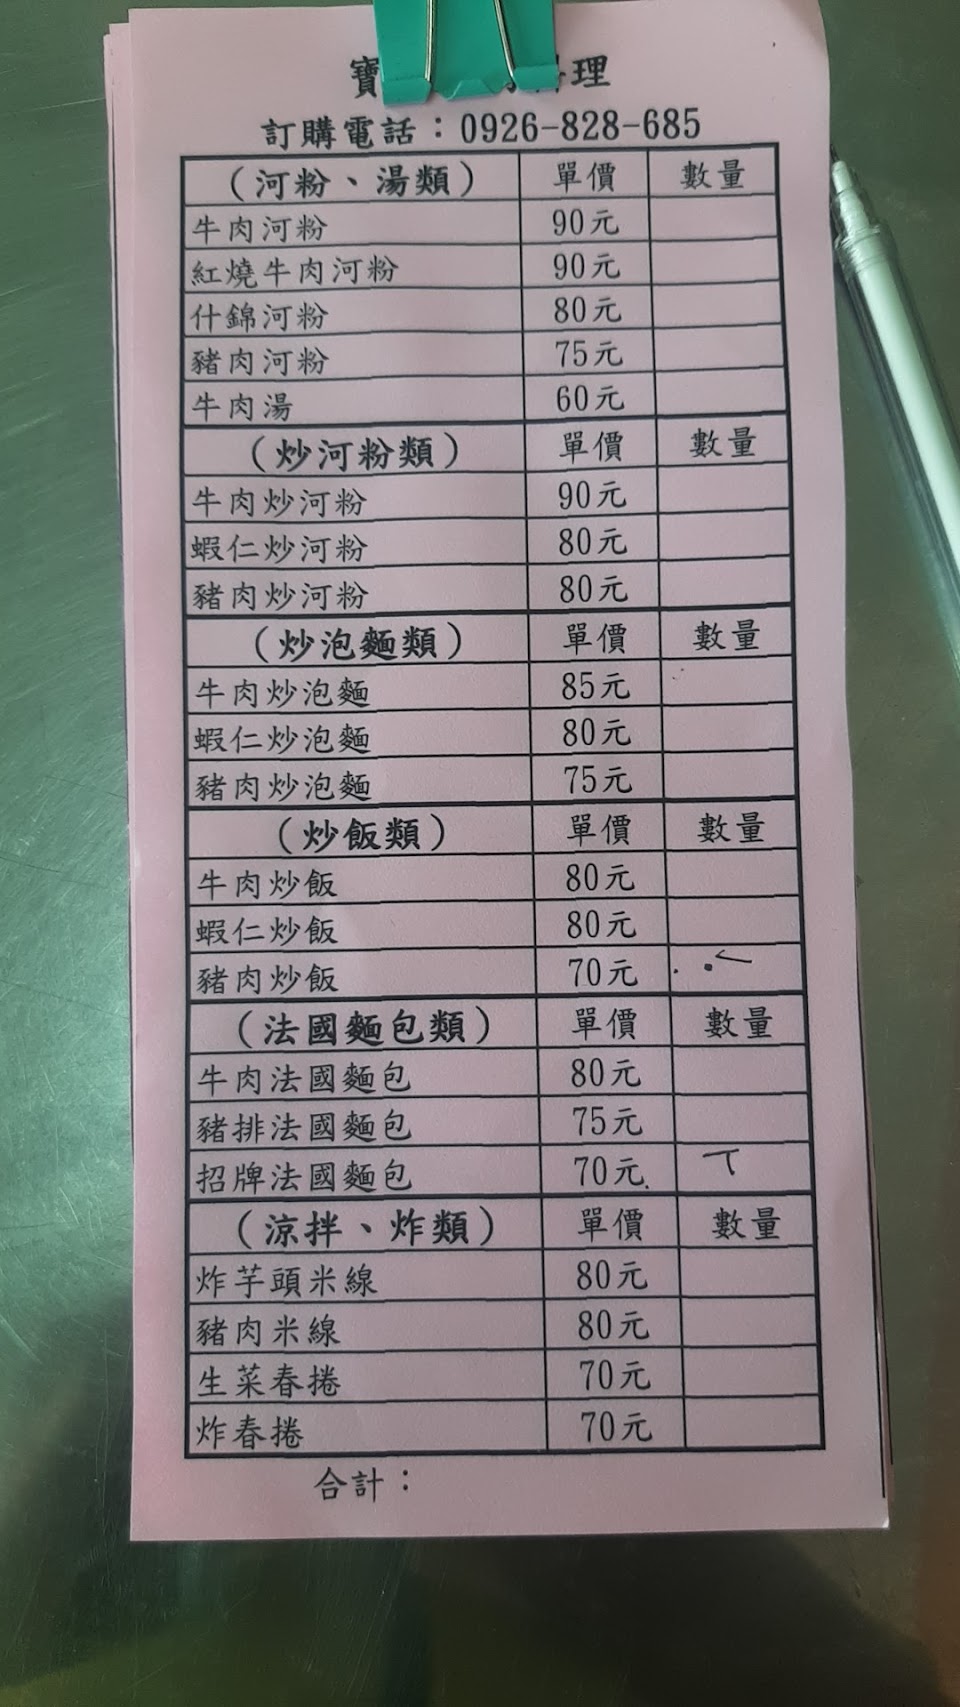 寶 料理
訂購電話：0926-828-685
（河粉、湯類） 單價 數量
牛肉河粉 90元
紅燒牛肉河粉 90元
什錦河粉 80元
豬肉河粉 75元
牛肉湯 60元
（炒河粉類） 單價 數量
牛肉炒河粉 90元
蝦仁炒河粉 80元
豬肉炒河粉 80元
（炒泡麵類） 單價 數量
牛肉炒泡麵 85元
蝦仁炒泡麵 80元
豬肉炒泡麵 75元
（炒飯類） 單價 數量
牛肉炒飯 80元
蝦仁炒飯 80元
豬肉炒飯 70元
（法國麵包類） 單價 數量
牛肉法國麵包 80元
豬排法國麵包 75元
招牌法國麵包 70元
（涼拌、炸類） 單價 數量
炸芋頭米線 80元
豬肉米線 80元
生菜春捲 70元
炸春捲 70元
合計：